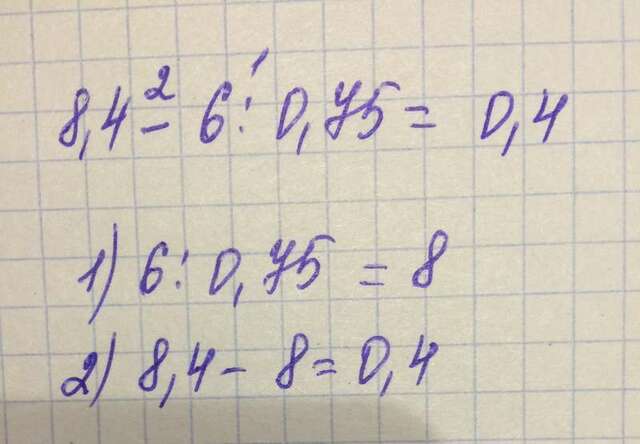 8,4 -² 6 :¹ 0,75 = 0,4
1) 6 : 0,75 = 8
2) 8,4 - 8 = 0,4